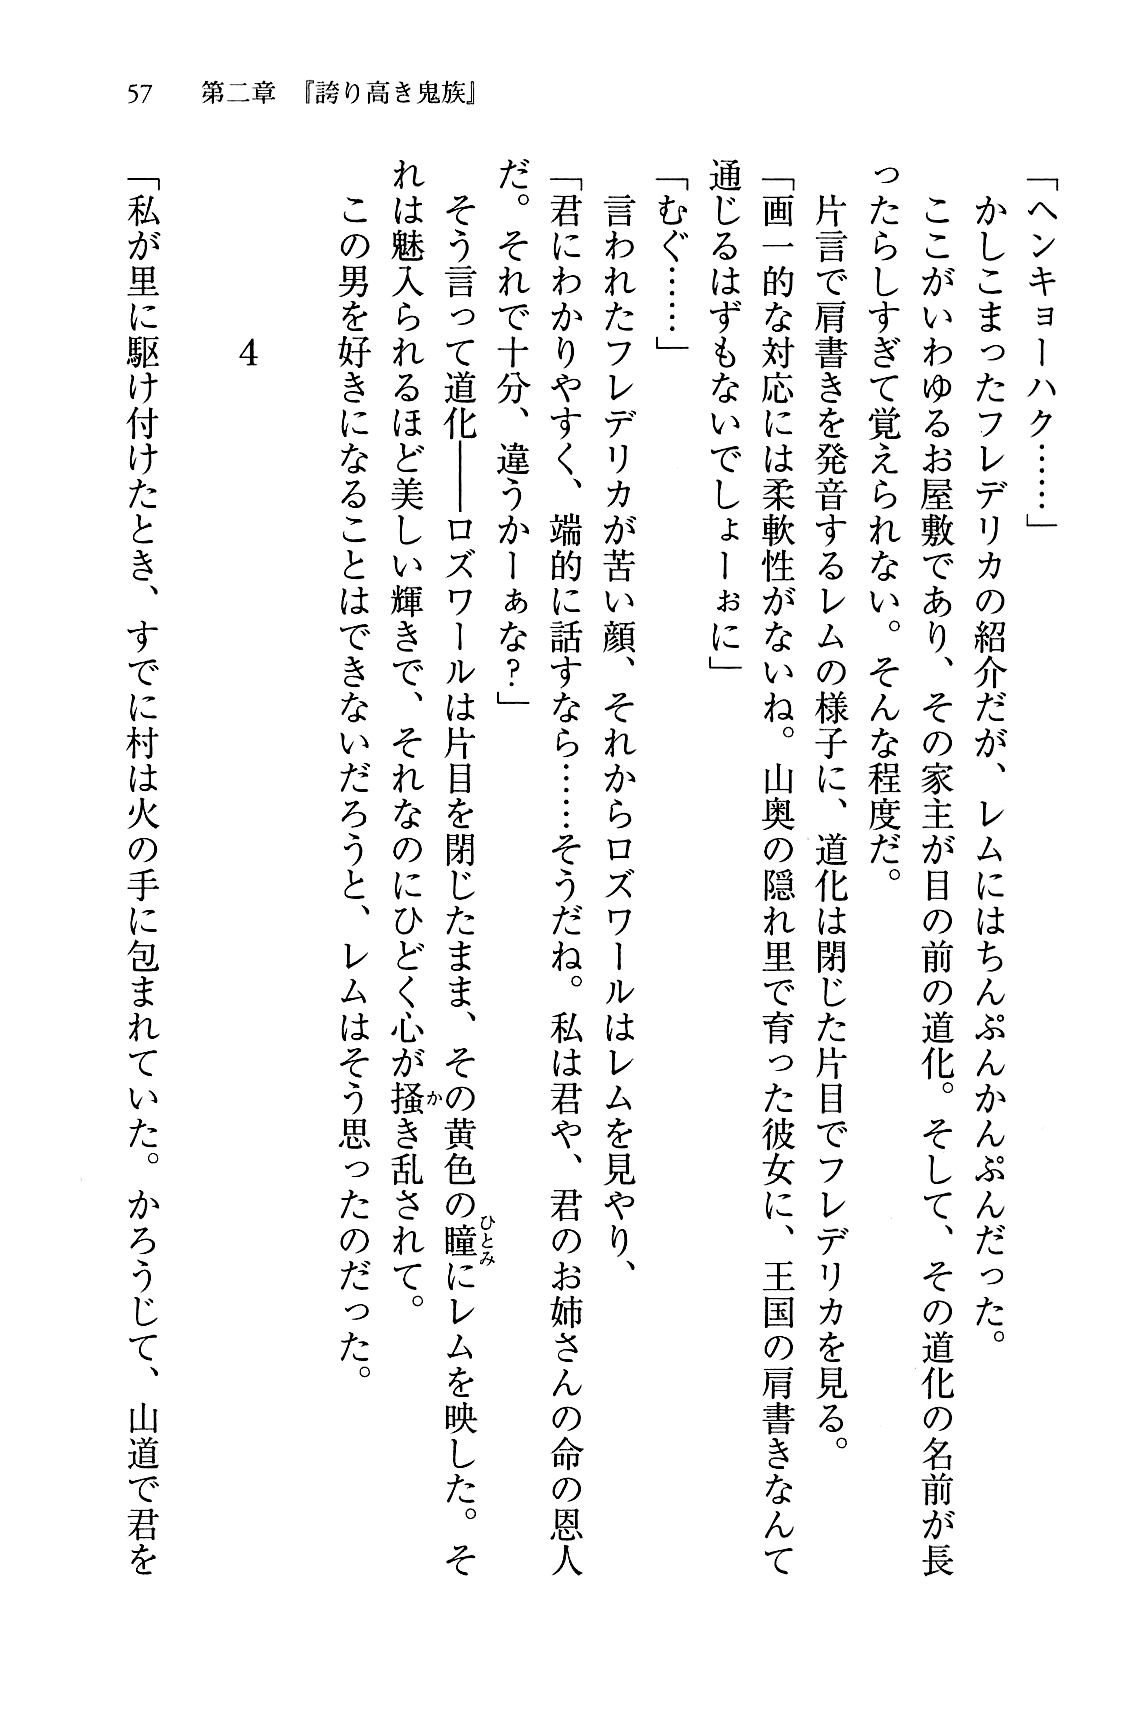 57　第二章　『誇り高き鬼族』
「ヘンキョーハク……」
　かしこまったフレデリカの紹介だが、レムにはちんぷんかんぷんだった。
　ここがいわゆるお屋敷であり、その家主が目の前の道化。そして、その道化の名前が長
ったらしすぎて覚えられない。そんな程度だ。
　片言で肩書きを発音するレムの様子に、道化は閉じた片目でフレデリカを見る。
「画一的な対応には柔軟性がないね。山奥の隠れ里で育った彼女に、王国の肩書きなんて
通じるはずもないでしょーぉに」
「むぐ……」
　言われたフレデリカが苦い顔、それからロズワールはレムを見やり、
「君にわかりやすく、端的に話すなら……そうだね。私は君や、君のお姉さんの命の恩人
だ。それで十分、違うかーぁな？」
　そう言って道化――ロズワールは片目を閉じたまま、その黄色の瞳ひとみにレムを映した。そ
れは魅入られるほど美しい輝きで、それなのにひどく心が掻かき乱されて。
　この男を好きになることはできないだろうと、レムはそう思ったのだった。
4
「私が里に駆け付けたとき、すでに村は火の手に包まれていた。かろうじて、山道で君を